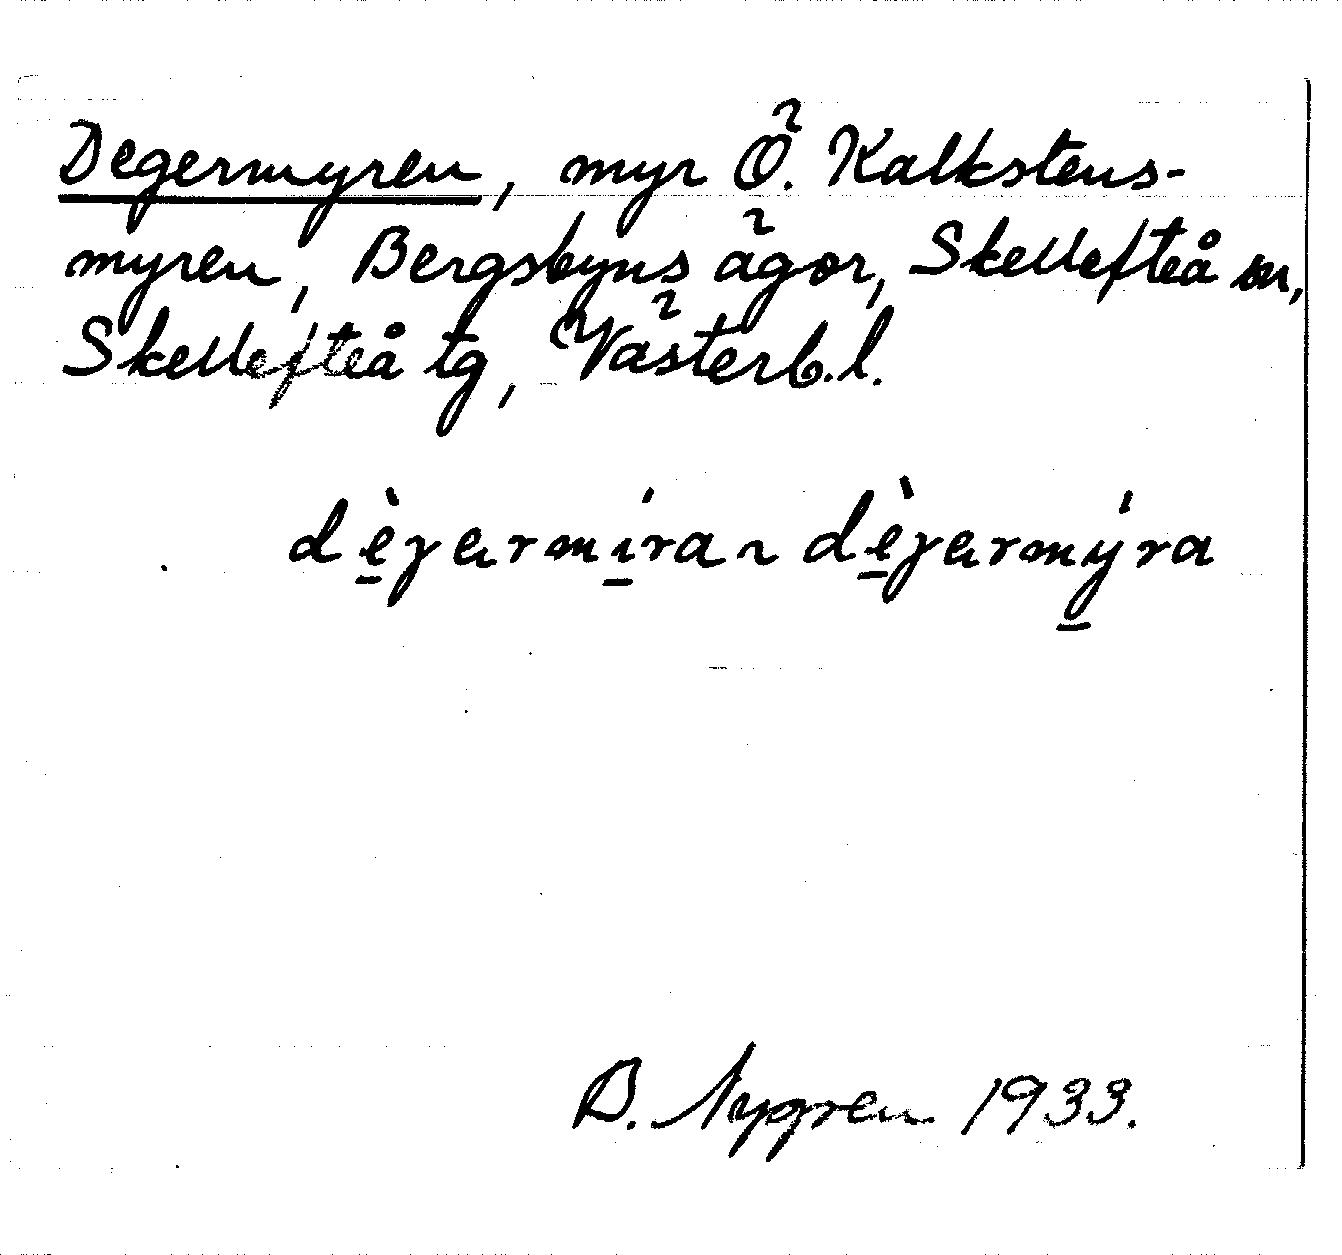 Degermyren, myr Ö. Kalkstens-
myren, Bergsbyns ägor, Skellefteå sn,
Skellefteå tg, Västerb. l.
dè̱gərmí̱ra ~ dè̱gərmý̱ra
B. Nygren 1933.